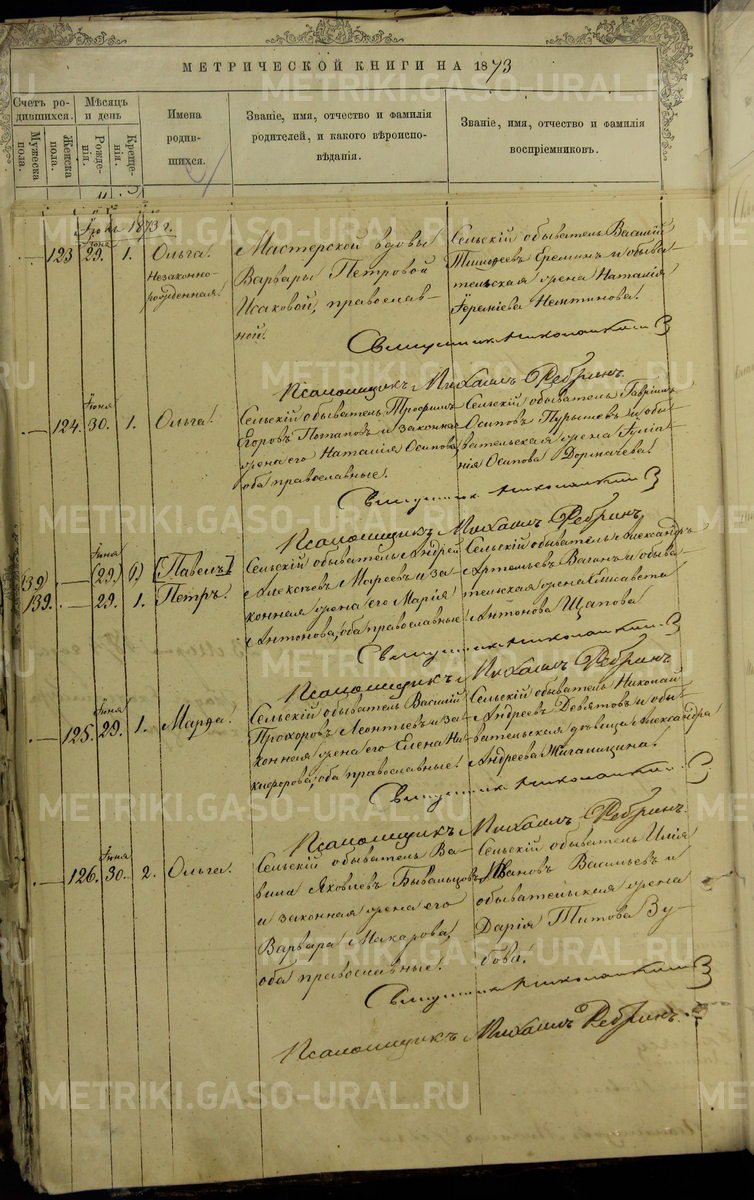 МЕТРИЧЕСКОЙ КНИГИ НА 1873
Счетъ ро-
дившихся.
Мужеска
пола.
Женска
пола.
Мѣсяцъ
и день
Рожде-
нія.
Креще-
нія.
Имена
родив-
шихся.
Званіе, имя, отчество и фамилія
родителей, и какого вѣроиспо-
вѣданія.
Званіе, имя, отчество и фамилія
воспріемниковъ.
Іюль 1873 г.
123 Іюня 29. 1. Ольга.
Незаконно-
рожденная.
Мастерской вдовы
Варвары Петровой
Исаковой, православ-
ной.
Сельскій обыватель Василій
Тимофеевъ Ереминъ и обыва
тельская жена Наталія
Нелтинова.
Священникъ
Псаломщикъ Михаилъ Ребринъ.
124. Іюня 30. 1. Ольга.
Сельскій обыватель Трофимъ
Егоровъ Потаповъ и законная
жена его Наталія Осипова,
оба православные.
Сельскій обыватель Гавріилъ
Осиповъ Пурышевъ и обы
вательская жена Іуліа
нія Осипова Дормачева.
Священникъ
Псаломщикъ Михаилъ Ребринъ.
(39) Іюня (29.) [Павелъ]
139. 29. 1. Петръ.
Сельскій обыватель Андрей
Алексѣевъ Мареевъ и за
конная жена его Марія
Антонова, оба православные.
Сельскій обыватель Александръ
Артемьевъ Вагинъ и обыва
тельская жена Елисавета
Антонова Щапова.
Священникъ
Псаломщикъ Михаилъ Ребринъ
125. Іюня 29. 1. Марѳа.
Сельскій обыватель Василій
Прохоровъ Леонтьевъ и за
конная жена его Елена Ни
кифорова, оба православные.
Сельскій обыватель Николай
Андреевъ Девятовъ и обы
вательская дѣвица Александра
Андреева Жиганицина.
Священникъ
Псаломщикъ Михаилъ Ребринъ.
126. Іюня 30. 2. Ольга.
Сельскій обыватель Ва
вила Яковлевъ Бывальцовъ
и законная жена его
Варвара Макарова,
оба православные.
Сельскій обыватель Илія
Ивановъ Васильевъ и
обывательская жена
Дарія Титова Зу
бова.
Священникъ
Псаломщикъ Михаилъ Ребринъ.
METRIKI.GASO-URAL.RU